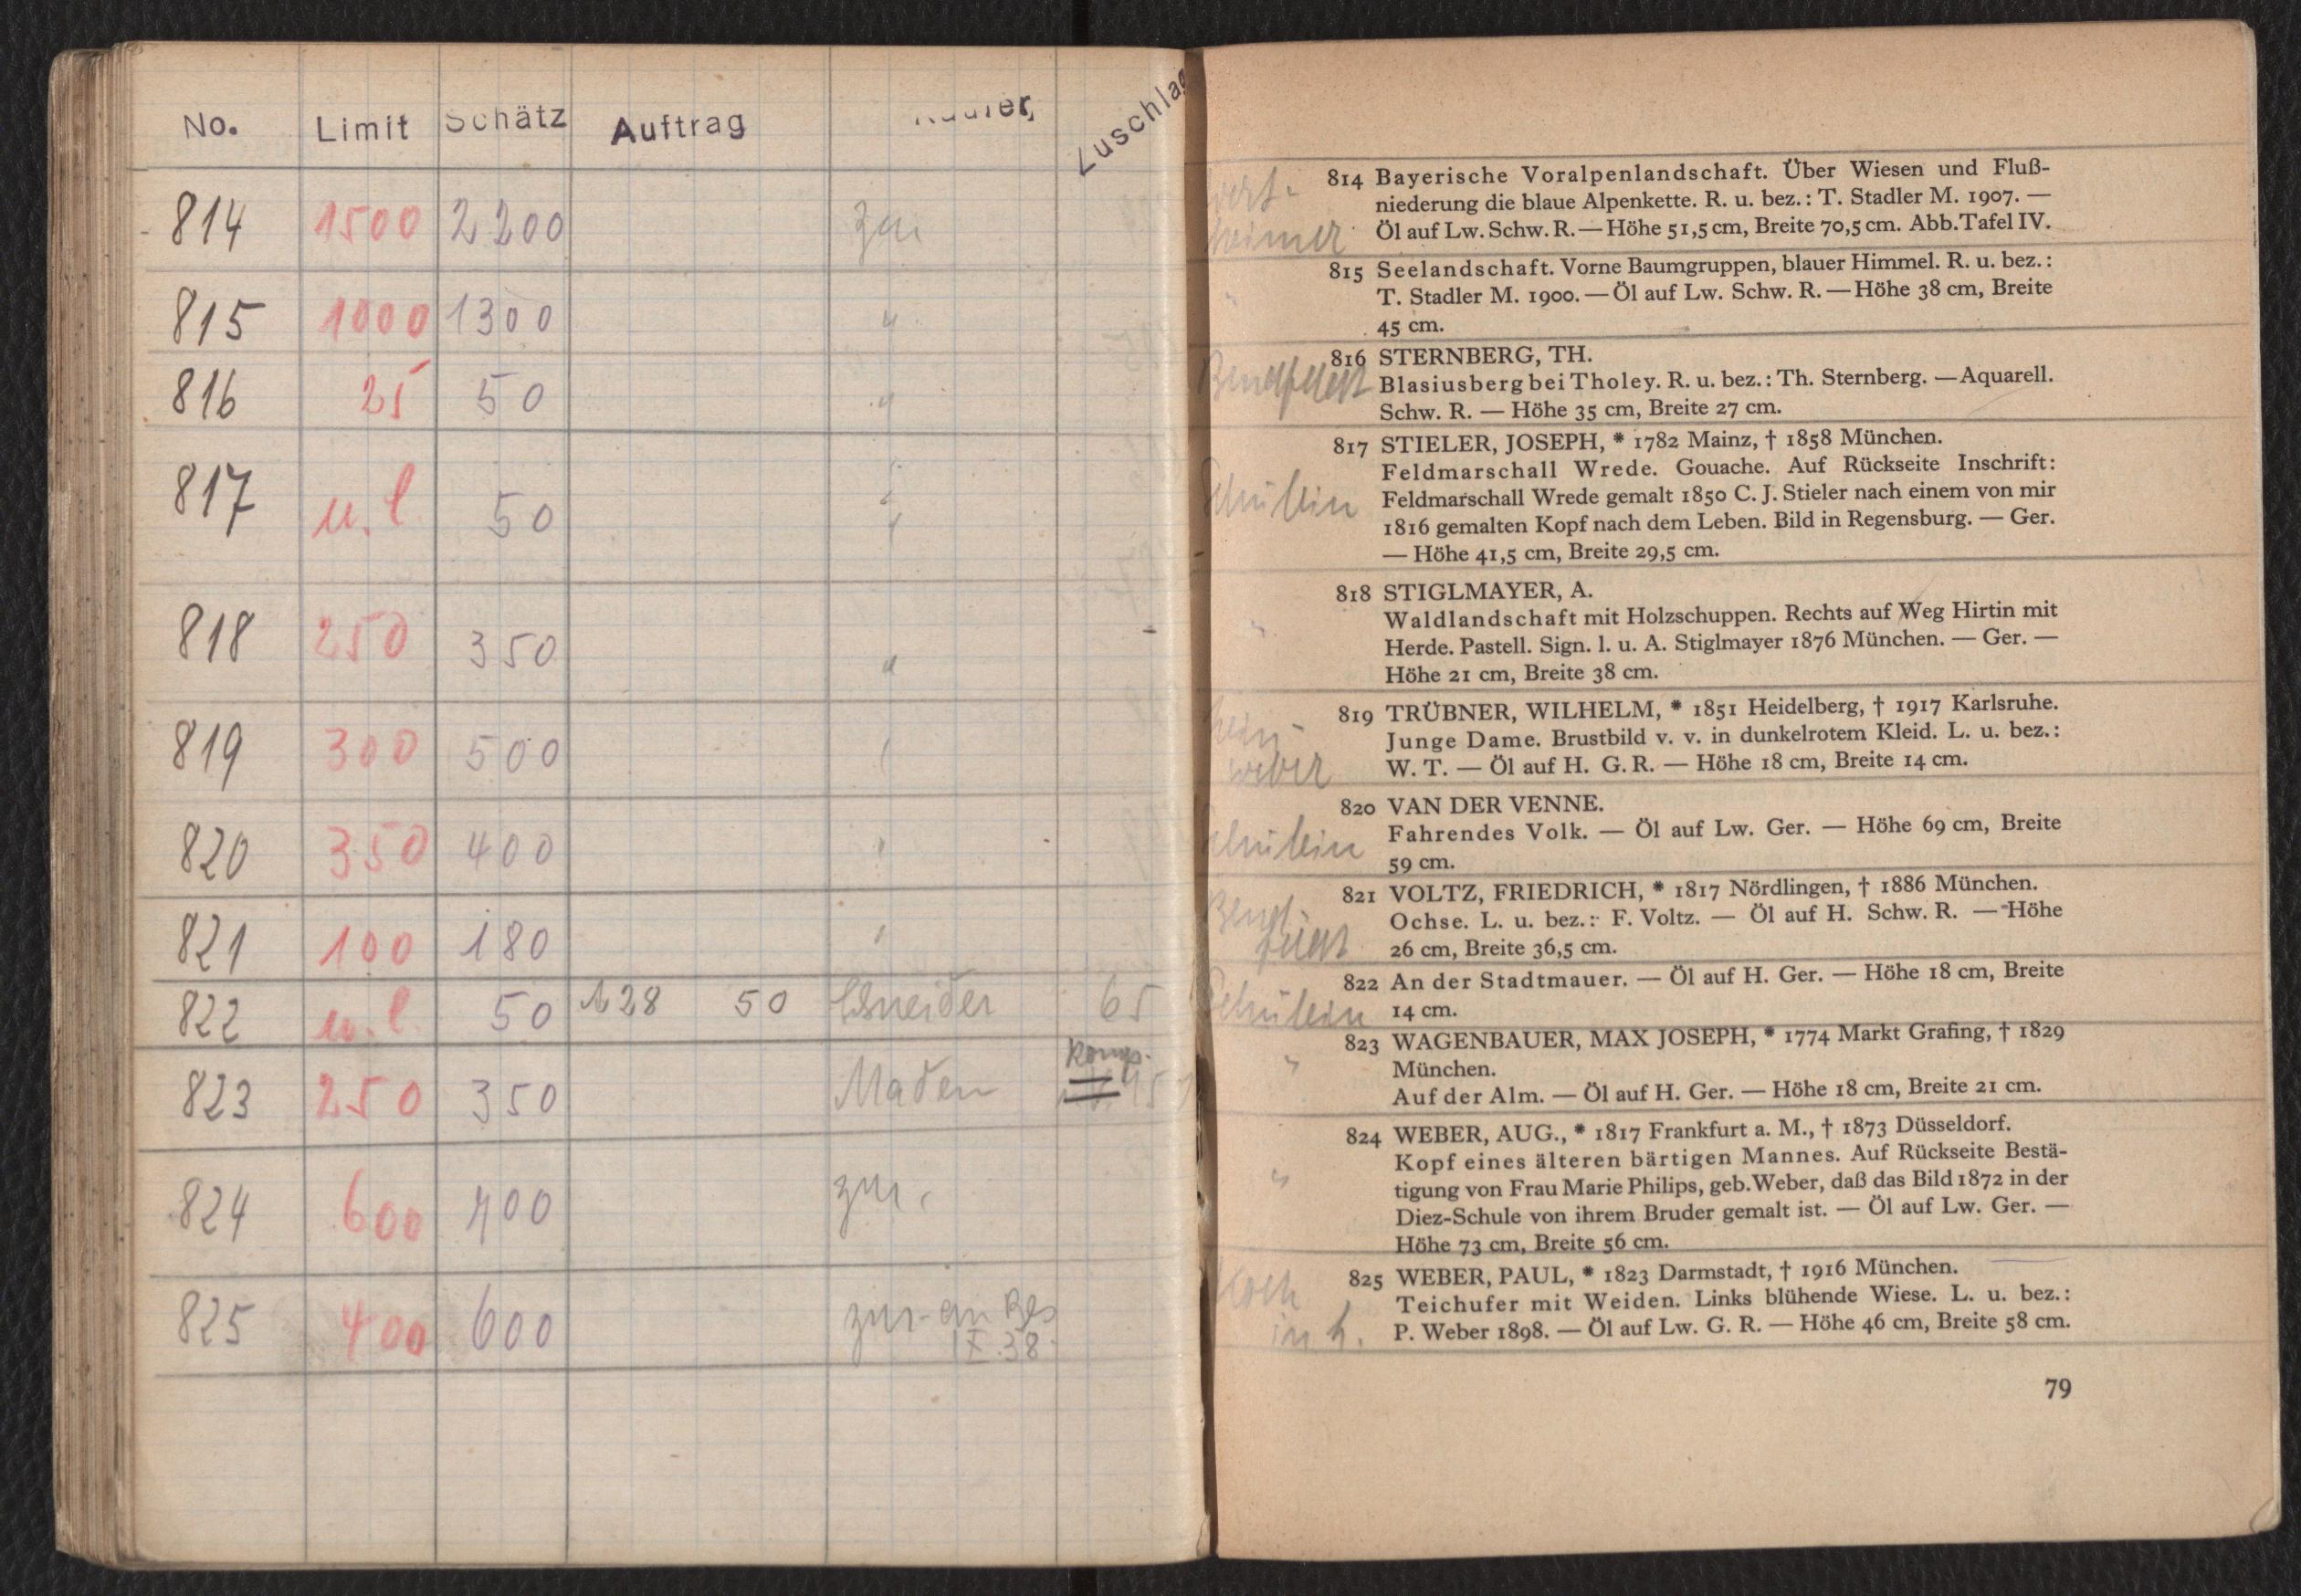 No. Limit Schätz Auftrag Zuschlag
814 1500 2200 zur
815 1000 1300 "
816 25 50 "
817 u. l 50 "
818 250 350 "
819 300 500
820 350 400 "
821 100 180 "
822 u. l. 50 128 50 65
823 250 350 Maden
824 600 700 zur.
825 400 600 zur-an Bes
IX.38.
814 Bayerische Voralpenlandschaft. Über Wiesen und Fluß-
niederung die blaue Alpenkette. R. u. bez.: T. Stadler M. 1907. —
heimer Öl auf Lw. Schw. R. — Höhe 51,5 cm, Breite 70,5 cm. Abb. Tafel IV.
815 Seelandschaft. Vorne Baumgruppen, blauer Himmel. R. u. bez.:
" T. Stadler M. 1900. — Öl auf Lw. Schw. R. — Höhe 38 cm, Breite
45 cm.
816 STERNBERG, TH.
Blasiusberg bei Tholey. R. u. bez.: Th. Sternberg. — Aquarell.
Schw. R. — Höhe 35 cm, Breite 27 cm.
817 STIELER, JOSEPH, * 1782 Mainz, † 1858 München.
Feldmarschall Wrede. Gouache. Auf Rückseite Inschrift:
Schülein Feldmarschall Wrede gemalt 1850 C. J. Stieler nach einem von mir
1816 gemalten Kopf nach dem Leben. Bild in Regensburg. — Ger.
— Höhe 41,5 cm, Breite 29,5 cm.
818 STIGLMAYER, A.
" Waldlandschaft mit Holzschuppen. Rechts auf Weg Hirtin mit
Herde. Pastell. Sign. l. u. A. Stiglmayer 1876 München. — Ger. —
Höhe 21 cm, Breite 38 cm.
819 TRÜBNER, WILHELM, * 1851 Heidelberg, † 1917 Karlsruhe.
Junge Dame. Brustbild v. v. in dunkelrotem Kleid. L. u. bez.:
weber W. T. — Öl auf H. G. R. — Höhe 18 cm, Breite 14 cm.
820 VAN DER VENNE.
Schülein Fahrendes Volk. — Öl auf Lw. Ger. — Höhe 69 cm, Breite
59 cm.
821 VOLTZ, FRIEDRICH, * 1817 Nördlingen, † 1886 München.
Ochse. L. u. bez.: F. Voltz. — Öl auf H. Schw. R. — Höhe
26 cm, Breite 36,5 cm.
822 An der Stadtmauer. — Öl auf H. Ger. — Höhe 18 cm, Breite
Schülein 14 cm.
823 WAGENBAUER, MAX JOSEPH, * 1774 Markt Grafing, † 1829
" München.
Auf der Alm. — Öl auf H. Ger. — Höhe 18 cm, Breite 21 cm.
824 WEBER, AUG., * 1817 Frankfurt a. M., † 1873 Düsseldorf.
Kopf eines älteren bärtigen Mannes. Auf Rückseite Bestä-
" tigung von Frau Marie Philips, geb. Weber, daß das Bild 1872 in der
Diez-Schule von ihrem Bruder gemalt ist. — Öl auf Lw. Ger. —
Höhe 73 cm, Breite 56 cm.
825 WEBER, PAUL, * 1823 Darmstadt, † 1916 München.
Koch Teichufer mit Weiden. Links blühende Wiese. L. u. bez.:
in h. P. Weber 1898. — Öl auf Lw. G. R. — Höhe 46 cm, Breite 58 cm.
79